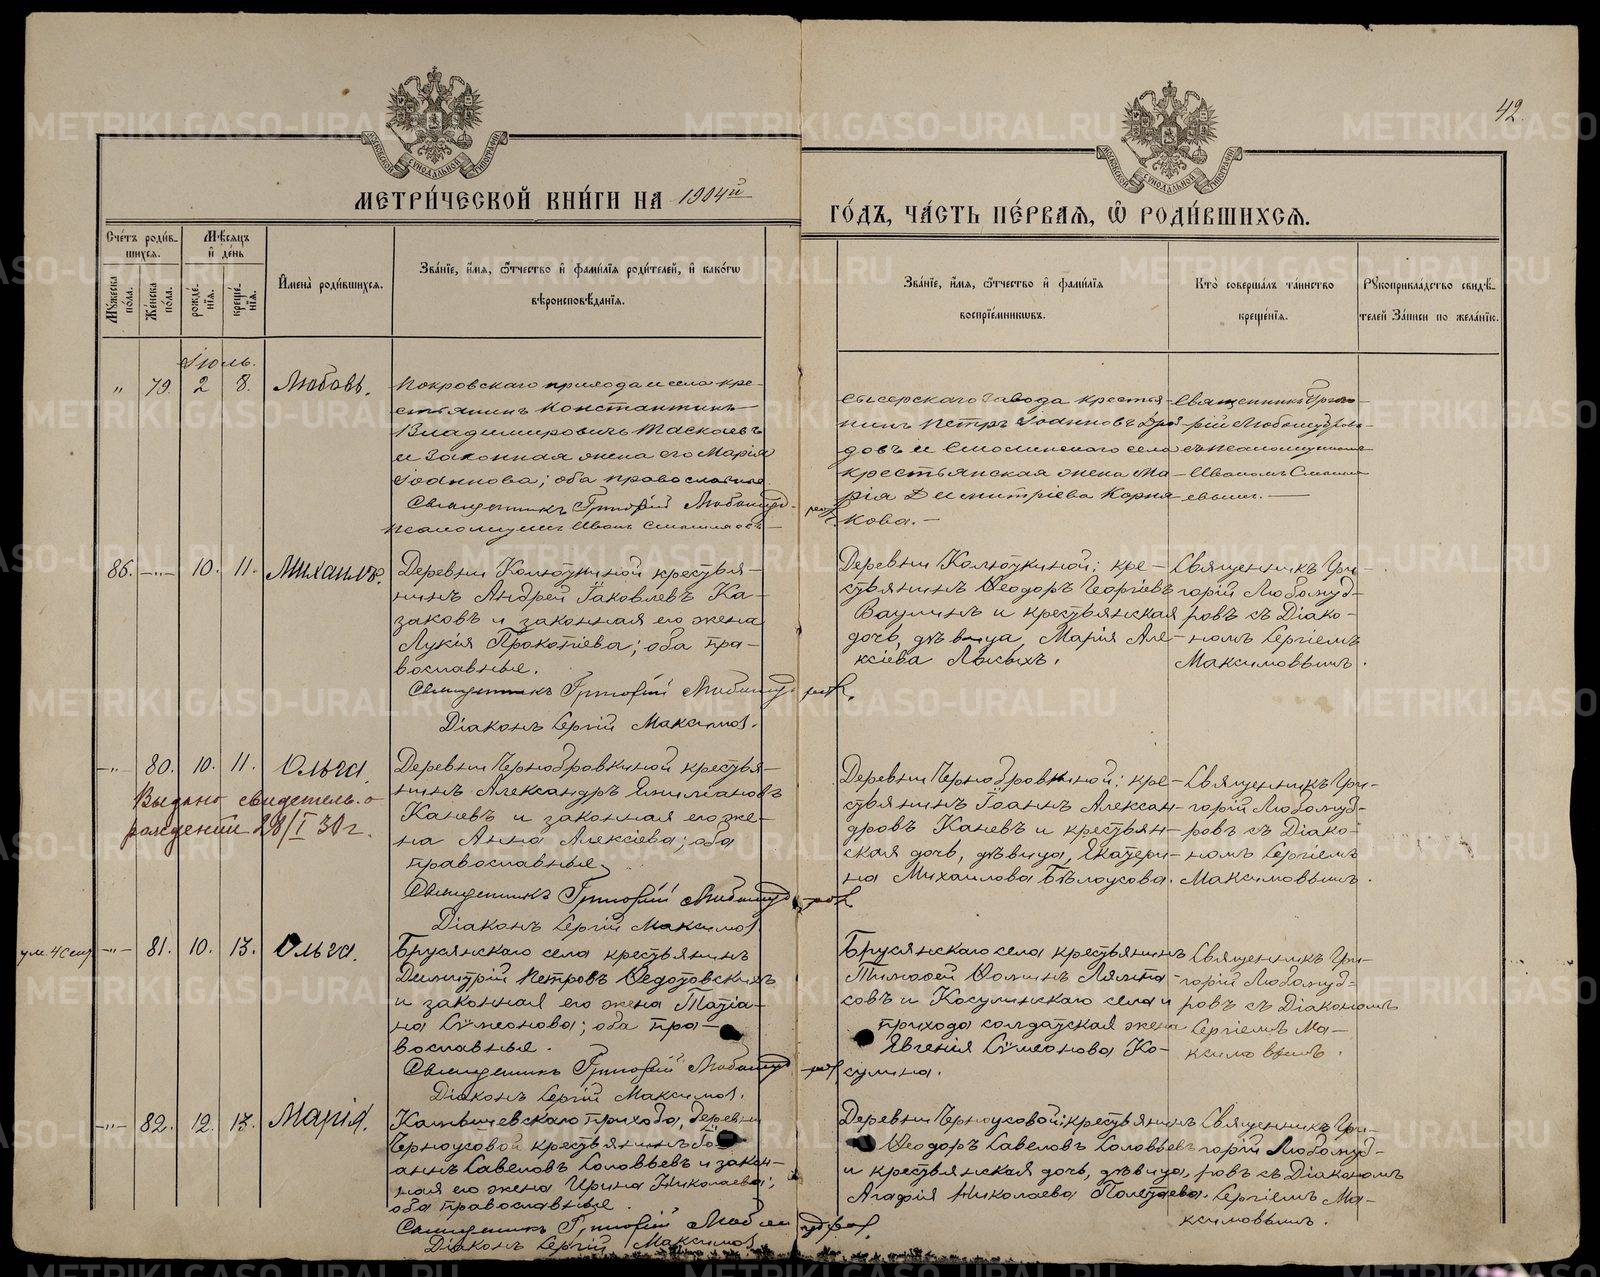 42.
МЕТРИ́ЧЕСКОЙ КНИ́ГИ НА 1904й
ГО́ДЪ, ЧА́СТЬ ПЕ́РВАЯ, Ѿ РОДИ́ВШИХСЯ.
Сче́тъ роди́в-
шихся.
Му́жеска по́ла.
Же́нска по́ла.
Мѣ́сяцъ
и де́нь
рожде́-
нія.
креще́-
нія.
Имена̀ роди́вшихся.
Зва́ніе, и́мя, ѻ҆́тчество и фами́лія роди́телей, и како́гѡ
вѣроисповѣ́данія.
Зва́ніе, и́мя, ѻ҆́тчество и фами́лія
воспріе́мниковъ.
Кто̀ соверша́лъ та́инство
креще́нія.
Рукоприкла́дство свидѣ́-
телей за́писи по жела́нію.
Іюль.
" 79. 2 8. Любовь.
Покровскаго прихода и села кре-
стьянинъ Константинъ
Владимировичъ Таскаевъ
и законная жена его Марія
Іоаннова; оба православные
Священникъ Григорій Любомуд-
ровъ
Псаломщикъ Иванъ
Сысерскаго завода крестья-
нинъ Петръ Іоанновъ
довъ и Смолинскаго села
крестьянская жена Ма-
рія Димитріева Корня-
кова.
Священникъ Григо-
рій Любомудро-
въ псаломщикомъ
Иваномъ
86. -"- 10. 11. Михаилъ.
Деревни Колюткиной крестья-
нинъ Андрей Іаковлевъ Ка-
заковъ и законная его жена
Лукія Прокопіева; оба пра-
вославные.
Священникъ Григорій Любомудровъ.
Діаконъ Сергій Максимов.
Деревни Колюткиной: кре-
стьянинъ Ѳеодоръ Георгіевъ
Ваулинъ и крестьянская
дочь, дѣвица, Марія Але-
ксіева Лысыхъ.
Священникъ Гри-
горій Любомуд-
ровъ съ Діако-
номъ Сергіемъ
Максимовымъ.
-"- 80. 10. 11. Ольга.
Выдано свидетель. о
рождении 28/I 30г.
Деревни Чернобровкиной крестья-
нинъ Александръ Емиліановъ
Каневъ и законная его же-
на Анна Алексіева; оба
православные.
Священникъ Григорій Любомудров
Діаконъ Сергій Максимов.
Деревни Чернобровкиной: кре-
стьянинъ Іоаннъ Алексан-
дровъ Каневъ и крестьян-
ская дочь, дѣвица, Екатери-
на Михаилова Бѣлоусова.
Священникъ Гри-
горій Любомуд-
ровъ съ Діако-
номъ Сергіемъ
Максимовымъ.
ум. 4 Сент.
-"- 81. 10. 13. Ольга.
Брусянскаго села крестьянинъ
Димитрій Петровъ Ѳедотовскихъ
и законная его жена Татіа-
на Сѵмеонова; оба пра-
вославные.
Священникъ Григорій Любомудров
Діаконъ Сергій Максимов.
Брусянскаго села крестьянинъ
Тимоѳей Ѳоминъ Ляпта-
совъ и Косулинскаго села и
прихода солдатская жена
Евгенія Сѵмеонова Ко-
сулина.
Священникъ Гри-
горій Любомуд-
ровъ съ Діакономъ
Сергіемъ Ма-
ксимовымъ.
-"- 82. 12. 13. Марія.
Камышевскаго прихода, деревни
Черноусовой крестьянинъ Іо-
аннъ Савеловъ Соловьевъ и закон-
ная его жена Ирина Николаева;
оба православные.
Священникъ Григорій Любомудров.
Діаконъ Сергій Максимов
Деревни Черноусовой: крестьянинъ
Ѳеодоръ Савеловъ Соловьевъ
и крестьянская дочь, дѣвица,
Агафія Николаева Полетаева.
Священникъ Гри-
горій Любомуд-
ровъ съ Діакономъ
Сергіемъ Ма-
ксимовымъ.
METRIKI.GASO-URAL.RU